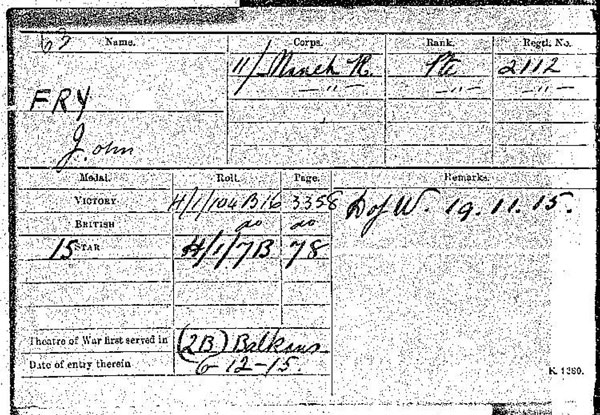 Name. Corps. Rank. Regtl. No.
11/ Manch R. Pte 2112
— " — — " — — " —
FRY
John
Medal. Roll. Page. Remarks.
VICTORY H/1/104B16 3358 D of W. 19.11.15.
BRITISH do do
15 STAR H/1/7B 78
Theatre of War first served in (2B) Balkans
Date of entry therein 6-12-15.
K. 1380.